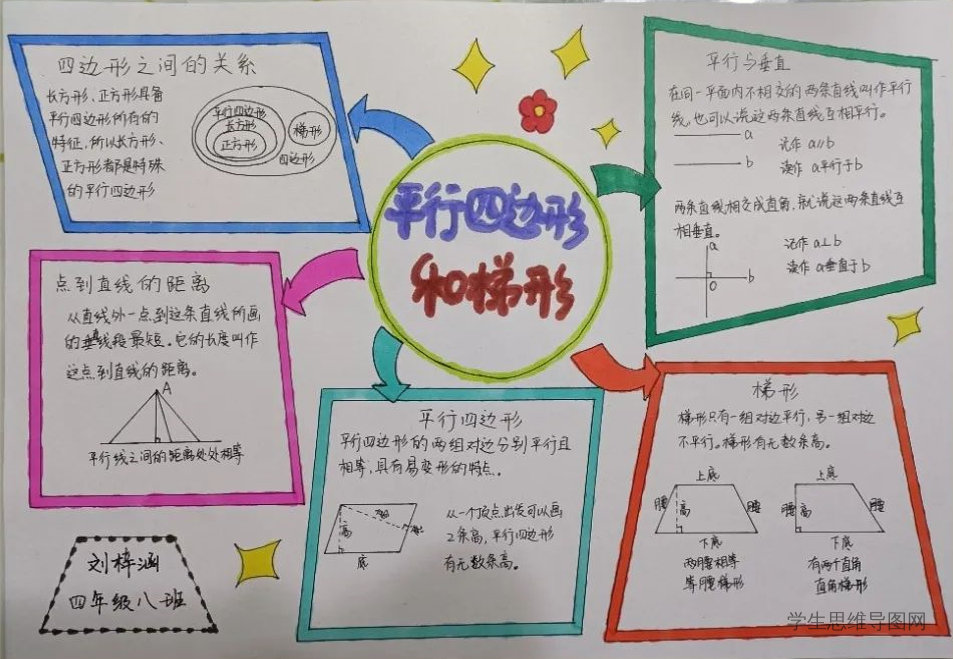 平行四边形
和梯形
四边形之间的关系
长方形、正方形具备
平行四边形所有的
特征,所以长方形、
正方形都是特殊
的平行四边形
平行四边形
长方形
正方形
梯形
四边形
平行与垂直
在同一平面内不相交的两条直线叫作平行
线,也可以说这两条直线互相平行。
a
b
记作 a∥b
读作 a平行于b
两条直线相交成直角,就说这两条直线互
相垂直。
a
b
O
记作 a⊥b
读作 a垂直于b
点到直线的距离
从直线外一点到这条直线所画
的垂线段最短。它的长度叫作
这点到直线的距离。
A
平行线之间的距离处处相等
平行四边形
平行四边形的两组对边分别平行且
相等,具有易变形的特点。
高
底
从一个顶点出发可以画
2条高,平行四边形
有无数条高。
梯形
梯形只有一组对边平行,另一组对边
不平行。梯形有无数条高。
上底
腰
高
腰
下底
两腰相等
等腰梯形
上底
腰
高
腰
下底
有两个直角
直角梯形
刘梓涵
四年级八班
学生思维导图网